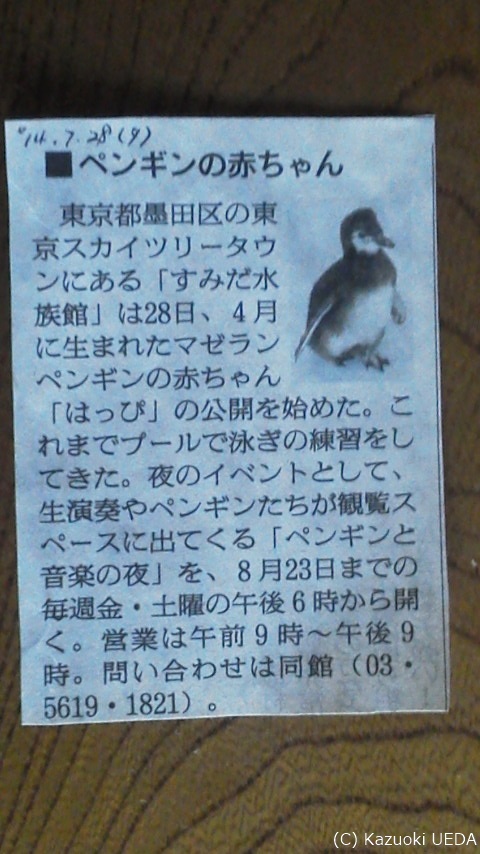 '14.7.28(夕)
■ペンギンの赤ちゃん
東京都墨田区の東
京スカイツリータウ
ンにある「すみだ水
族館」は28日、4月
に生まれたマゼラン
ペンギンの赤ちゃん
「はっぴ」の公開を始めた。こ
れまでプールで泳ぎの練習をし
てきた。夜のイベントとして、
生演奏やペンギンたちが観覧ス
ペースに出てくる「ペンギンと
音楽の夜」を、8月23日までの
毎週金・土曜の午後6時から開
く。営業は午前9時〜午後9
時。問い合わせは同館（03・
5619・1821）。
(C) Kazuoki UEDA